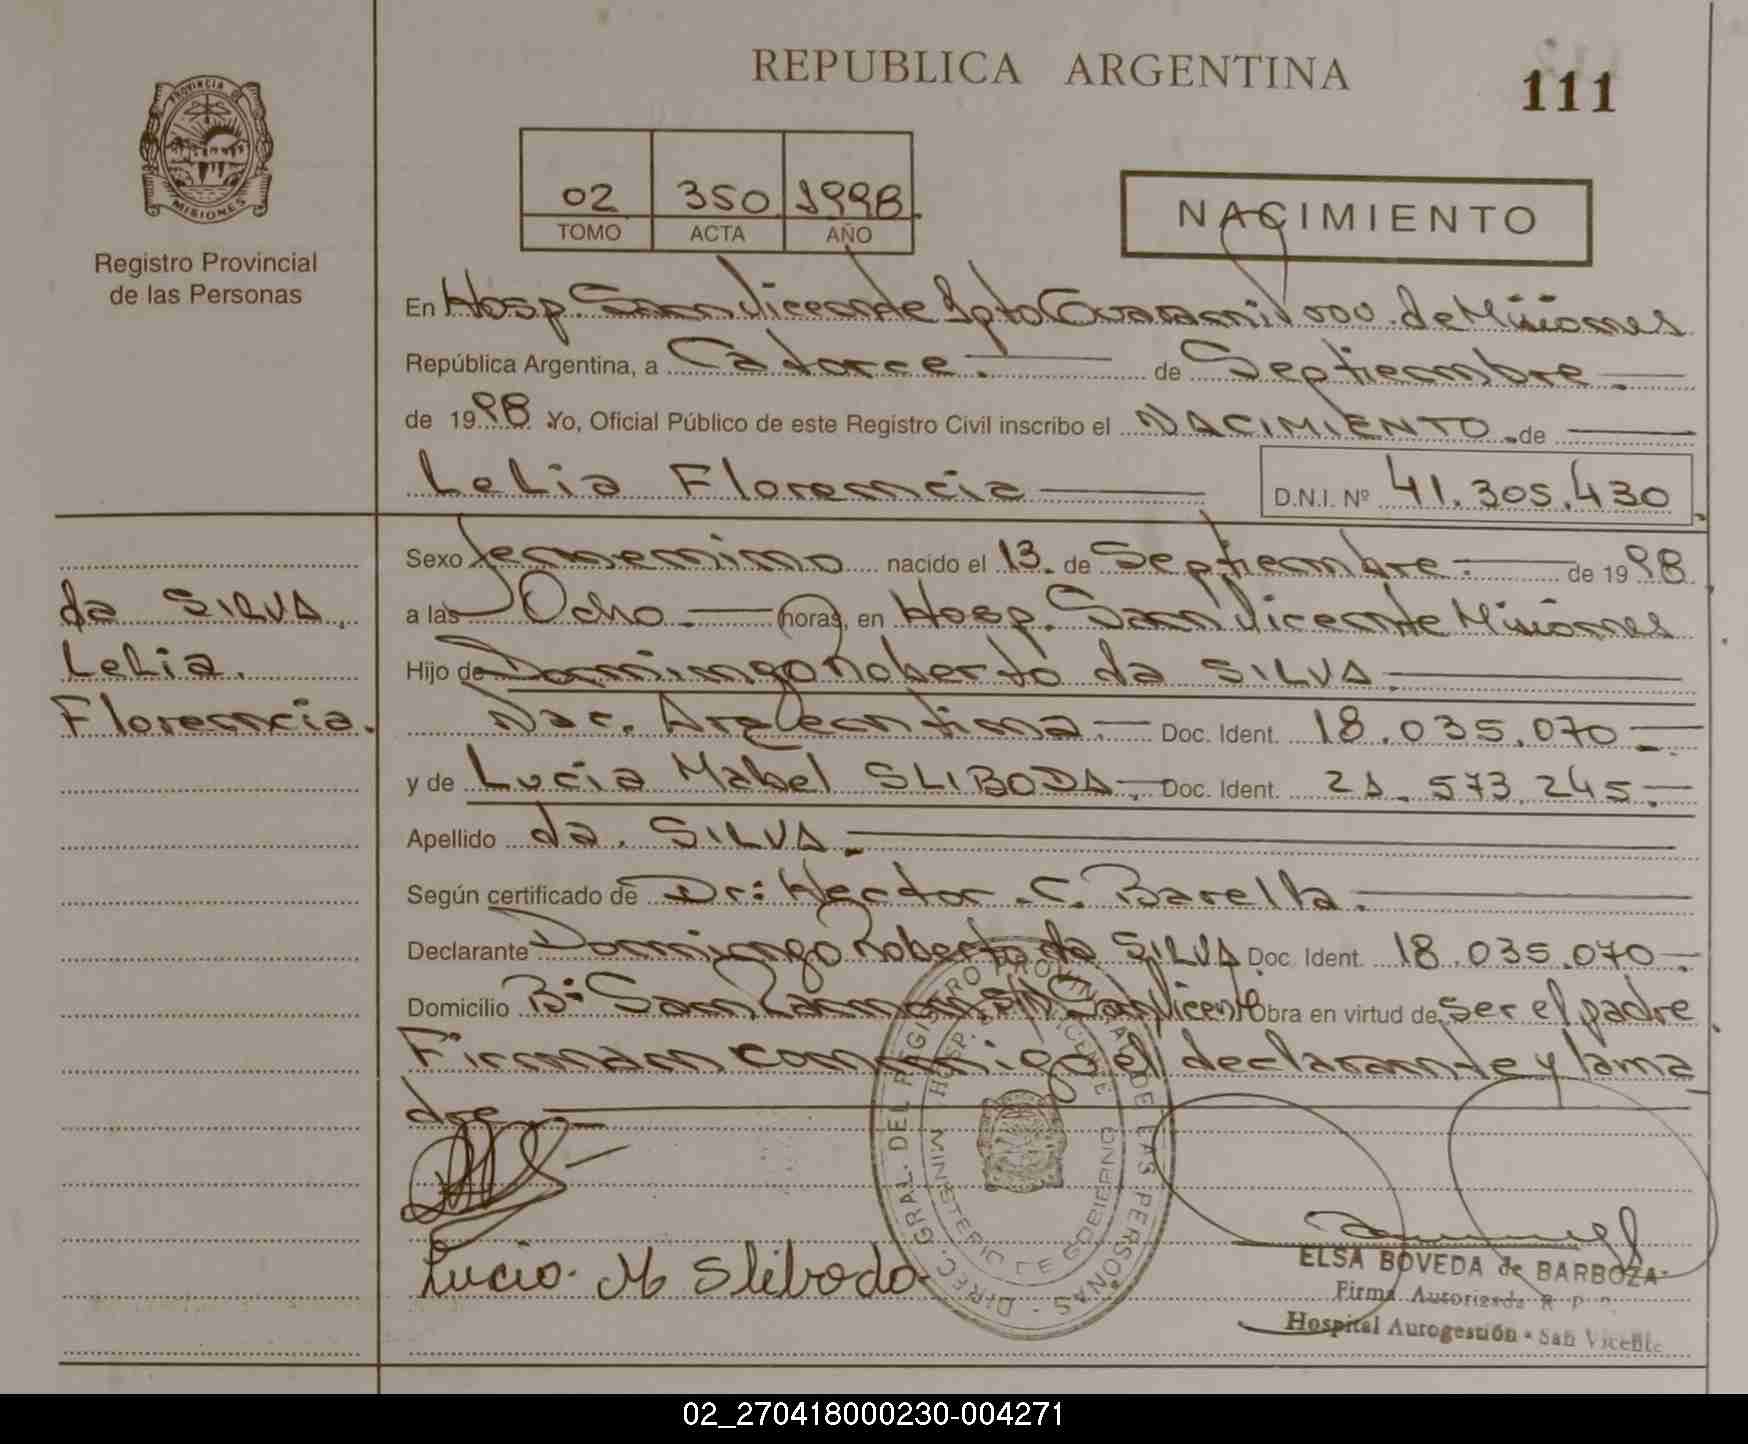 REPUBLICA ARGENTINA
111
PROVINCIA DE MISIONES
Registro Provincial
de las Personas
02 350 1998
TOMO ACTA AÑO
NACIMIENTO
En Hosp. San Vicente Dpto Guaraní Prov. de Misiones
República Argentina, a Catorce.— de Septiembre.—
de 1998 Yo, Oficial Público de este Registro Civil inscribo el NACIMIENTO.de —
Lelia Florencia — D.N.I. Nº 41.305.430
Sexo femenino nacido el 13. de Septiembre.— de 1998
a las Ocho.— horas, en Hosp. San Vicente Misiones
Hijo de Domingo Roberto da SILVA.—
Nac. Argentina.— Doc. Ident. 18.035.070.—
y de Lucia Mabel SLIBODA.— Doc. Ident. 21.573.245.—
Apellido da. SILVA.—
Según certificado de Dr: Hector .C. Barella.—
Declarante Domingo Roberto da SILVA Doc. Ident. 18.035.070.—
Domicilio Bº San Ramon San Vicente Obra en virtud de ser el padre
Firman conmigo el declarante y la ma
dre —
da SILVA.
Lelia.
Florencia.
Lucia. M Sliboda.
DIREC. GRAL. DEL REGISTRO PROVINCIAL DE LAS PERSONAS -
HOSP. S. VICENTE
MINISTERIO DE GOBIERNO
ELSA BOVEDA de BARBOZA
Firma Autorizada R. P.
Hospital Autogestión - San Vicente
02_270418000230-004271